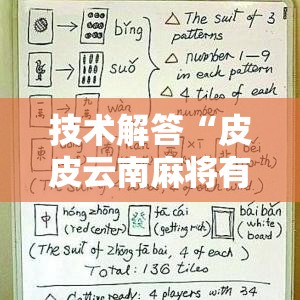 bǐng
△ The suit of 3
patterns
suǒ
△ number 1-9
in each pattern
一 九 wàn
萬 萬
△ 4 tiles of
技术解答“皮
皮云南麻将有
běi
hóng zhōng
(red center)
fā cái
(getting rich)
bái bǎn
(white
board)
(The suit of Zhōng fā bái, 4 of each)
Total: 136 tiles
△ Getting ready: 4 players with 34